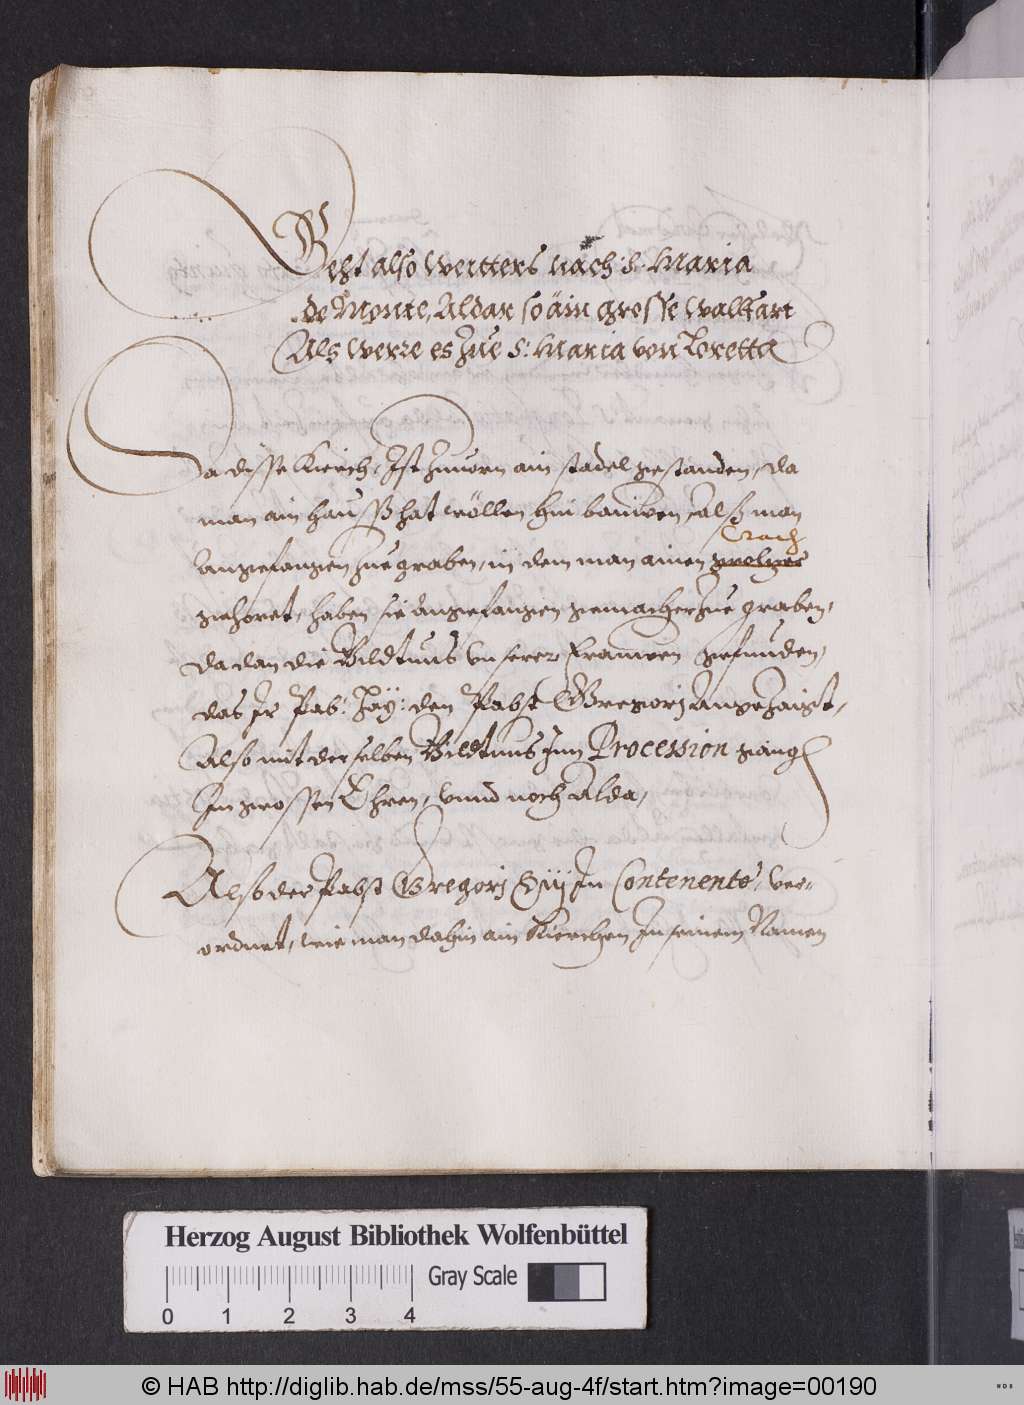 Geht also weitters nach S: Maria
de Monte, Aldar so äin grosse walffart
Als werre es Zue S: Maria von Loretta
Da disse Kierch, Ist Zuuorn ain stadel gestanden, da
man ain hauß hat wöllen hin bauwen, alß man
Angefangen Zue graben, in dem man ainen
Crach
gehöret, haben sie angefangen gemacher Zue graben,
da dan die Bildtnus unserer frauwen gefunden,
das Ir Pab: Hay: den Pabst Gregorj Angezaigt,
Also mit der selben Bildtnus Inn Procession gang
In grossen Ehren, vnnd noch Alda,
Also der Pabst Gregorj Xiij In Contenente, ver-
ordnet, wie man dahin ain Kierchen In seinem Namen
Herzog August Bibliothek Wolfenbüttel
Gray Scale
0 1 2 3 4
© HAB http://diglib.hab.de/mss/55-aug-4f/start.htm?image=00190